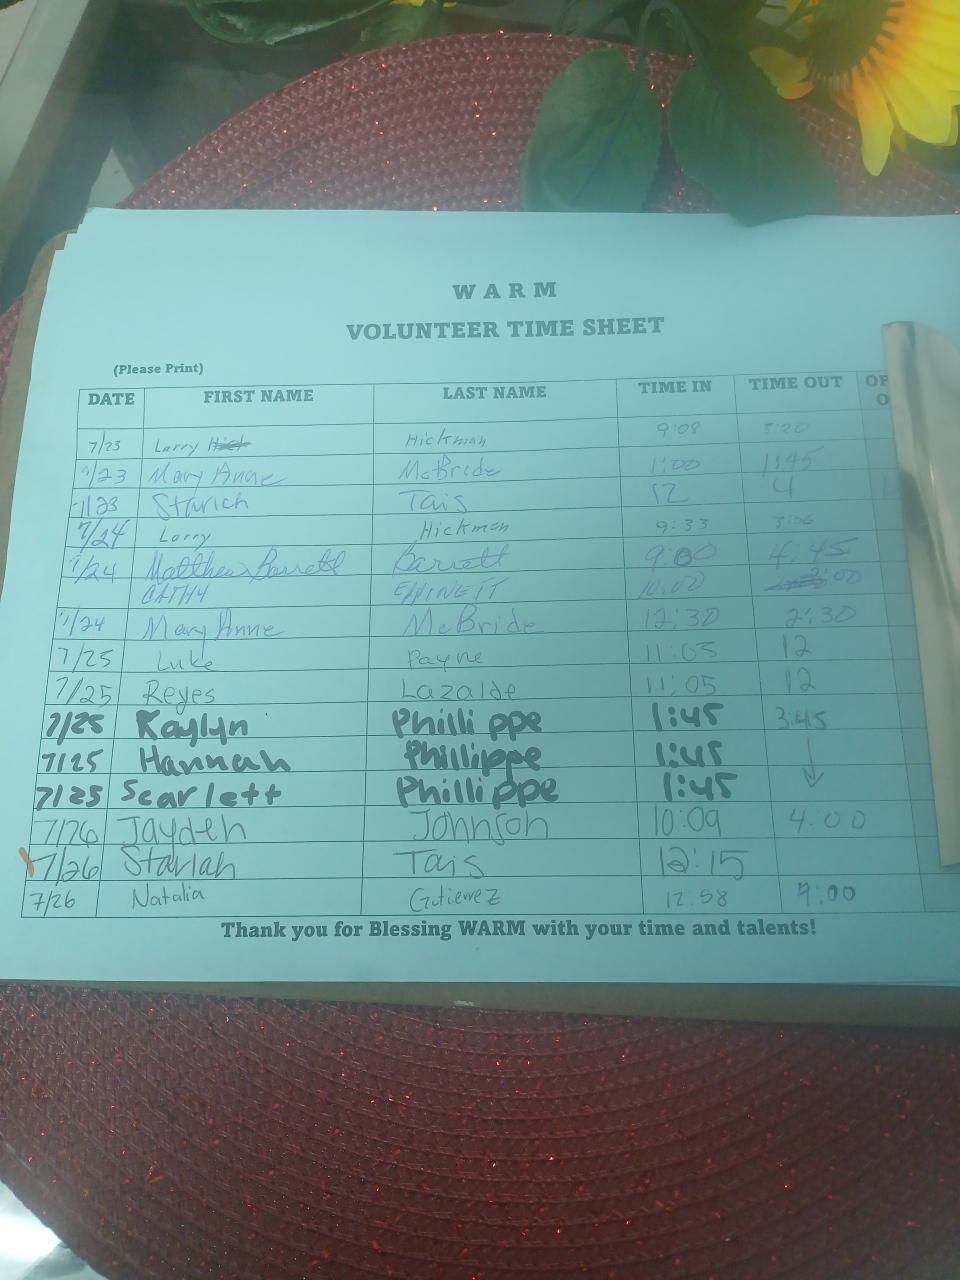 WARM
VOLUNTEER TIME SHEET
(Please Print)
DATE FIRST NAME LAST NAME TIME IN TIME OUT
7/23 Larry Hickman 9:08 3:20
7/23 Mary Anne McBride 1:00 1:45
7/23 Starlah Tais 12 4
7/24 Larry Hickman 9:33 3:06
7/24 Matthew Barrett Barrett 9:00 4:45
CATHY 10:00 2:00
7/24 Mary Anne McBride 12:30 2:30
7/25 Luke Payne 11:05 12
7/25 Reyes Lazalde 11:05 12
7/25 Kaylyn Phillippe 1:45 3:45
7/25 Hannah Phillippe 1:45
7/25 Scarlett Phillippe 1:45
7/26 Jayden Johnson 10:09 4:00
7/26 Starlah Tais 12:15
7/26 Natalia Gutierrez 12:58 4:00
Thank you for Blessing WARM with your time and talents!